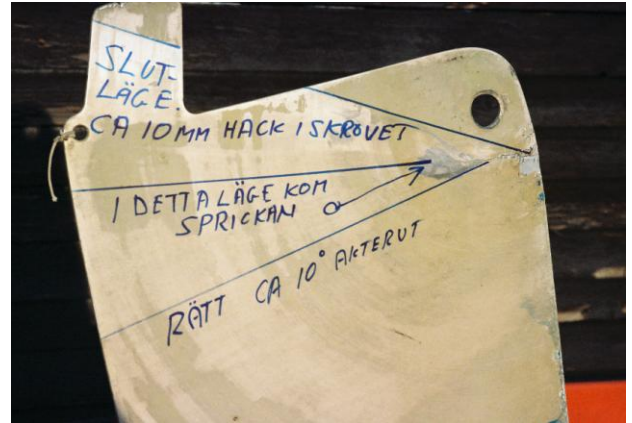 SLUT-
LÄGE.
CA 10MM HACK I SKROVET
I DETTA LÄGE KOM
SPRICKAN
RÄTT CA 10° AKTERUT